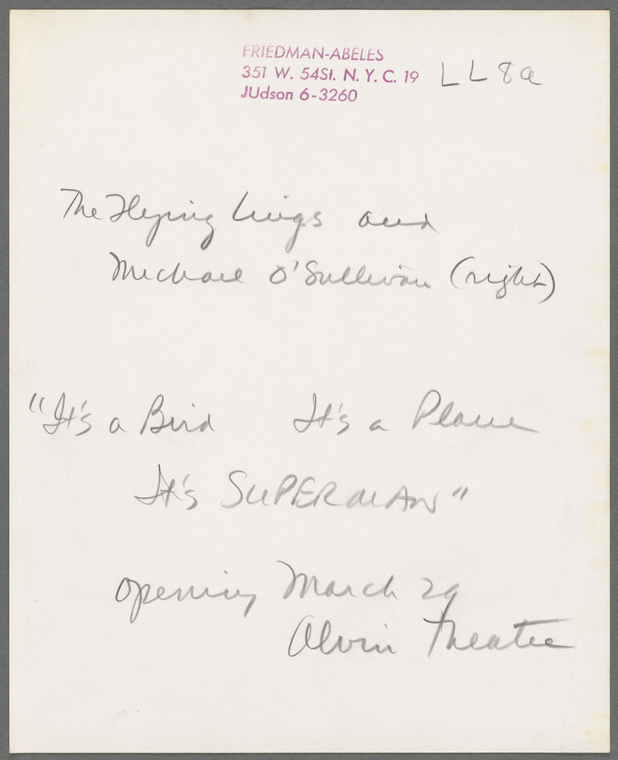 FRIEDMAN-ABELES
351 W. 54St. N. Y. C. 19
JUdson 6-3260
LL8a
The Flying Lings and
Michael O'Sullivan (right)
"It's a Bird It's a Plane
It's SUPERMAN"
opening March 29
Alvin Theatre